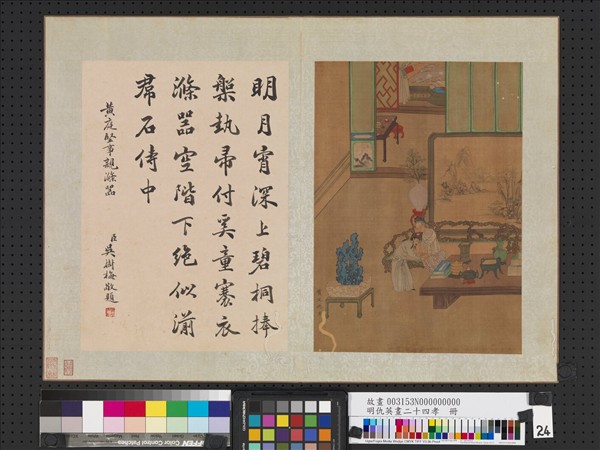 明月宵深上碧桐捧
槃執帚付奚童褰衣
滌器空階下絕似湔
帬石侍中
黃庭堅事親滌器
臣吳樹梅敬題
故畫 003153N000000000
明仇英畫二十四孝 冊
24
TIFFEN Color Control Patches